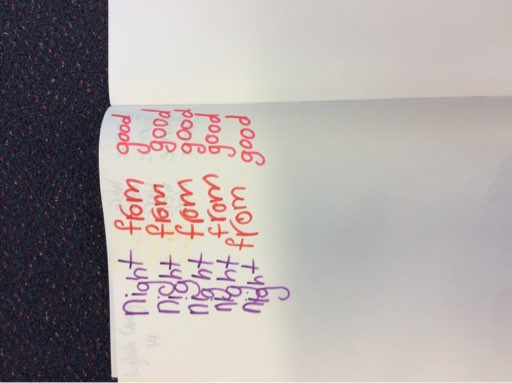 night from good
night from good
night from good
night from good
night from good